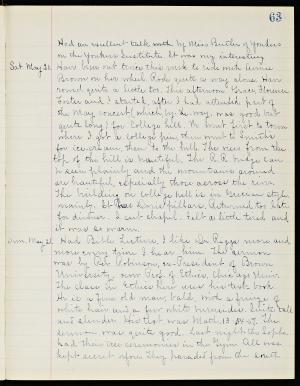 63
Had an excellent talk with by Miss Butler of Yonkers
on the Yonkers Institute. It was very interesting
Sat. May 20. Have been out twice this week to ride with Annie
Brown on her wheel. Rode quite a way alone. Have
rowed quite a little too. This afternoon Grace, Florence
Foster and I started, after I had attended part of
the May concert (which by the way, was good but
quite long) for College hill. We went first to town
where I got a College pin, then went to Smith's
for ice-cream, then to the hill. The view from the
top of the hill is beautiful. The R.R. bridge can
be seen plainly and the mountains around
are beautiful, especially those across the river.
The building on College hill is in Grecian style
mainly. It has Ionic pillars. Returned too late
for dinner. I cut chapel. Felt a little tired and
it was so warm.
Sun. May 21. Had Bible Lecture, I like Dr. Riggs more and
more every time I hear him. The sermon
was by Dr. Robinson, ex-President of Brown
University, now Prof. of Ethics, Chicago Univer.
The class in Ethics here uses his text book.
He is a fine old man, bald, with a fringe of
white hair and a few white burnsides. Is tall
and slender. His text was Matt. 13
sermon was quite good. Last night the Sophs
had their tree ceremonies in the Gym. All was
kept secret before. They paraded from the south